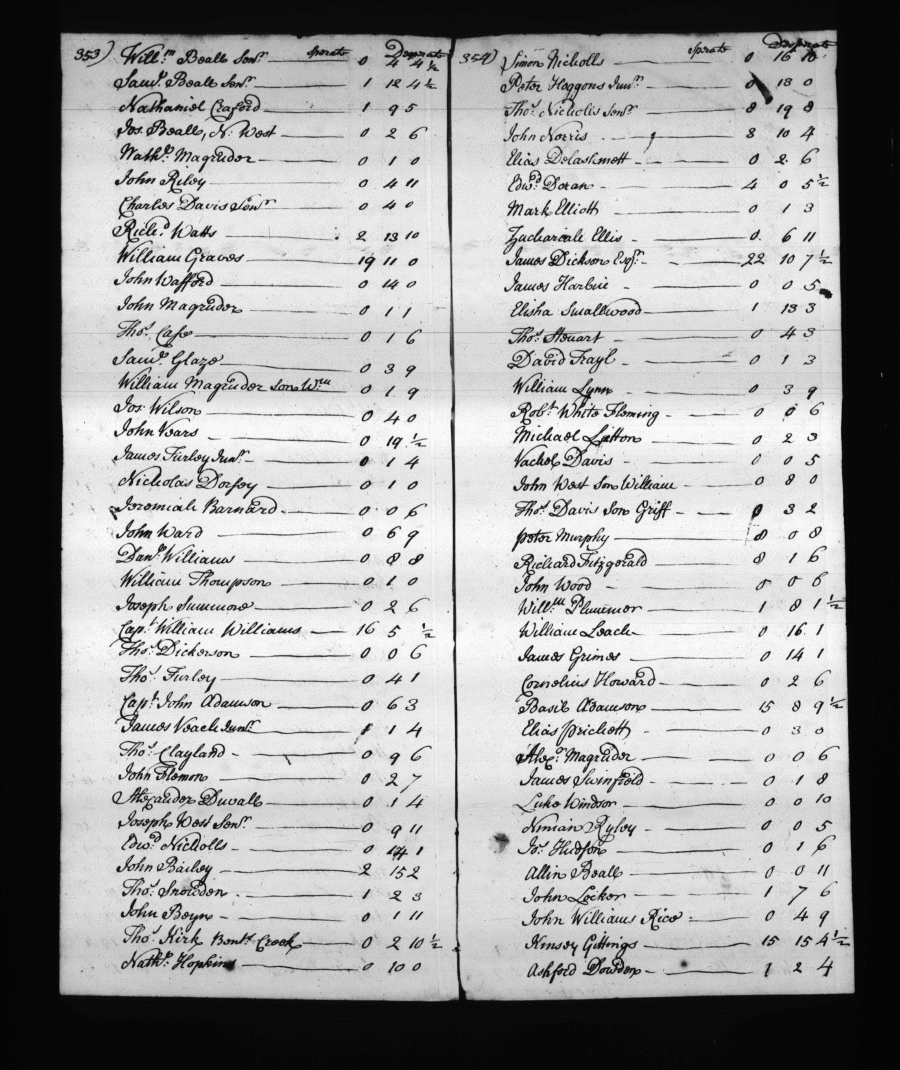 353) Sperate Desperate
Will.m Beall Sen.r 0 4 4 ½
Sam.l Beall Sen.r 1 12 4 ½
Nathaniel Craford 1 9 5
Jos. Beall, N. West 0 2 6
Nath.l Magruder 0 1 0
John Riley 0 4 11
Charles Davis Sen.r 0 4 0
Rich.d Watts 2 13 10
William Graves 19 11 0
John Wafford 0 14 0
John Magruder 0 1 1
Tho.s Case 0 1 6
Sam.l Glaze 0 3 9
William Magruder Son W.m 0 1 9
Jos. Wilson 0 4 0
John Vears 0 19 ½
James Turley Jun.r 0 1 4
Nicholas Dorsey 0 1 0
Jeremiah Barnard 0 0 6
John Ward 0 6 9
Dan.l Williams 0 8 8
William Thompson 0 1 0
Joseph Summore 0 2 6
Cap.t William Williams 16 5 ½
Tho.s Dickerson 0 0 6
Tho.s Turley 0 4 1
Cap.t John Adamson 0 6 3
James Veach Jun.r 1 1 4
Tho.s Clayland 0 9 6
John Flemon 0 2 7
Alexander Duvall 0 1 4
Joseph West Sen.r 0 9 11
Edw.d Nicholls 0 14 1
John Bailey 2 15 2
Tho.s Snowden 1 2 3
John Beyn 0 1 11
Tho.s Kirk Ben.t Creek 0 2 10 ½
Nath.l Hopkins 0 10 0
354) Sperate Desperate
Simon Nicholls 0 16 10
Peter Hoggons Jun.r 0 13 0
Tho.s Nicholls Sen.r 8 19 8
John Norris 8 10 4
Elias Delashmett 0 2 6
Edw.d Doran 4 0 5 ½
Mark Elliott 0 1 3
Zachariah Ellis 0 6 11
James Dickson Esq.r 22 10 7 ½
James Harbin 0 0 5
Elisha Smallwood 1 13 3
Tho.s Steuart 0 4 3
David Trayl 0 1 3
William Lynn 0 3 9
Rob.t White Fleming 0 0 6
Michael Litton 0 2 3
Vachel Davis 0 0 5
John West Son William 0 8 0
Tho.s Davis Son Griff 0 3 2
Peter Murphy 8 0 8
Richard Fitzgerald 8 1 6
John Wood 0 0 6
Will.m Plummer 1 8 1 ½
William Leach 0 16 1
James Grimes 0 14 1
Cornelius Howard 0 2 6
Basil Adamson 15 8 9 ½
Elias Prichett 0 3 0
Alex.r Magruder 0 0 6
James Swinfield 0 1 8
Luke Windsor 0 0 10
Ninian Ryley 0 0 5
Jo.s Hudson 0 1 6
Allin Beall 0 0 11
John Locker 1 7 6
John Williams Rice 0 4 9
Kinsey Gittings 15 15 4 ½
Ashford Dowden 1 2 4